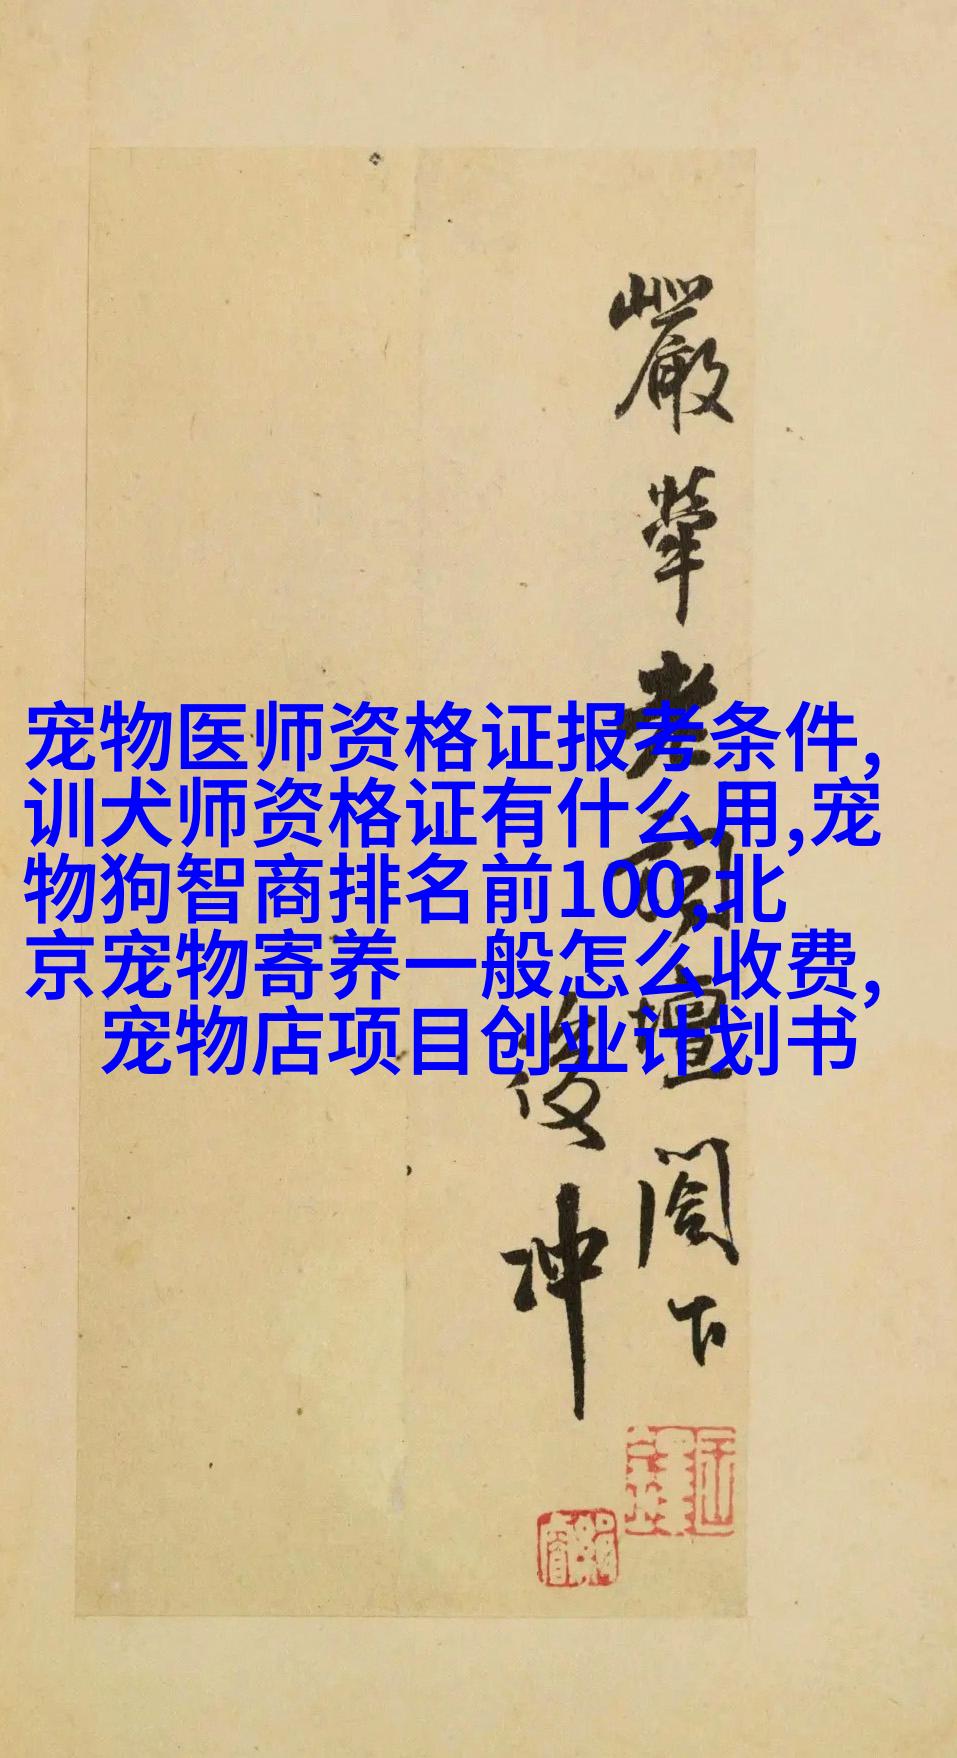 宠物医师资格证报考条件,
训犬师资格证有什么用,宠
物狗智商排名前100,北
京宠物寄养一般怎么收费,
宠物店项目创业计划书
嚴犖老詞壇閤下
俊冲